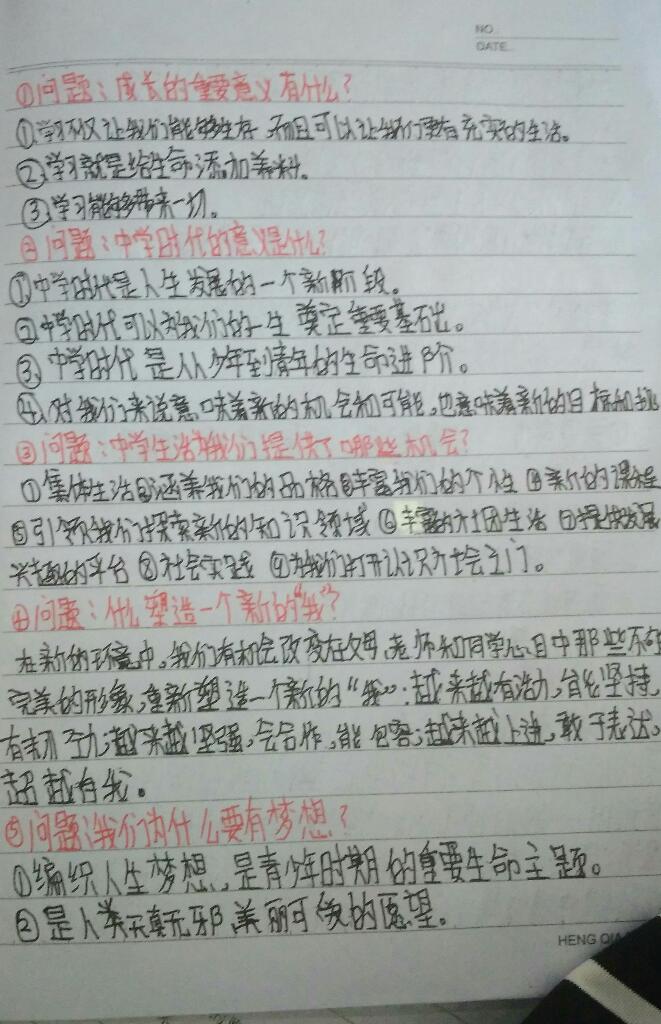 NO.
DATE.
①问题:成长的重要意义有什么?
①学习不仅让我们能够生存,而且可以让我们更有充实的生活。
②学习就是给生命添加养料。
③学习能够带来一切。
②问题:中学时代的意义是什么?
①中学时代是人生发展的一个新阶段。
②中学时代可以为我们的一生奠定重要基石出。
③中学时代是从少年到青年的生命进阶。
④对我们来说意味着新的机会和可能,也意味着新的目标和挑
③问题:中学生活为我们提供了哪些机会?
①集体生活②涵养我们的品格③丰富我们的个性④新的课程
⑤引领我们探索新的知识领域⑥丰富的社团生活⑦提供发展
兴趣的平台⑧社会实践⑨为我们打开认识社会之门。
④问题:什么塑造一个新的“我”?
在新的环境中,我们有机会改变在父母,老师和同学心目中那些不够
完美的形象,重新塑造一个新的“我”:越来越有活力,能坚持,
有韧力;越来越坚强,会合作,能包容;越来越上进,敢于表达,
超越自我。
⑤问题:我们为什么要有梦想?
①编织人生梦想,是青少年时期的重要生命主题。
②是人类天真无邪、美丽可爱的愿望。
HENG QIA